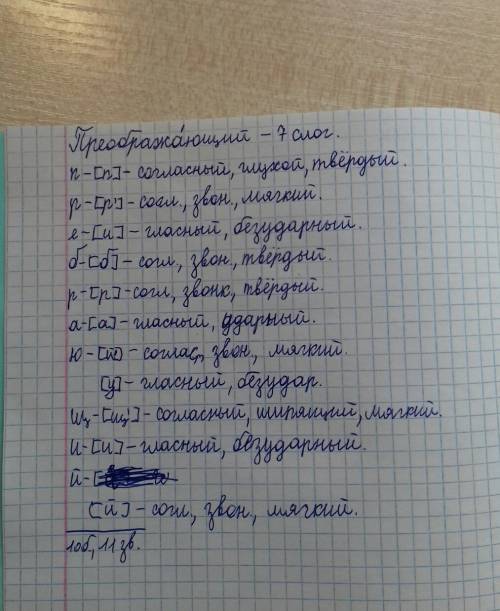 Преобража́ющий – 7 слог.
п – [п] – согласный, глухой, твёрдый.
р – [р'] – согл., звон., мягкий.
е – [и] – гласный, безударный.
б – [б] – согл., звон., твёрдый.
р – [р] – согл., звонк., твёрдый.
а – [а] – гласный, ударный.
ю – [й] – соглас, звон., мягкий.
[у] – гласный, безудар.
щ – [щ'] – согласный, шипящий, мягкий.
и – [и] – гласный, безударный.
й – [
[й] – согл., звон., мягкий.
10б, 11 зв.